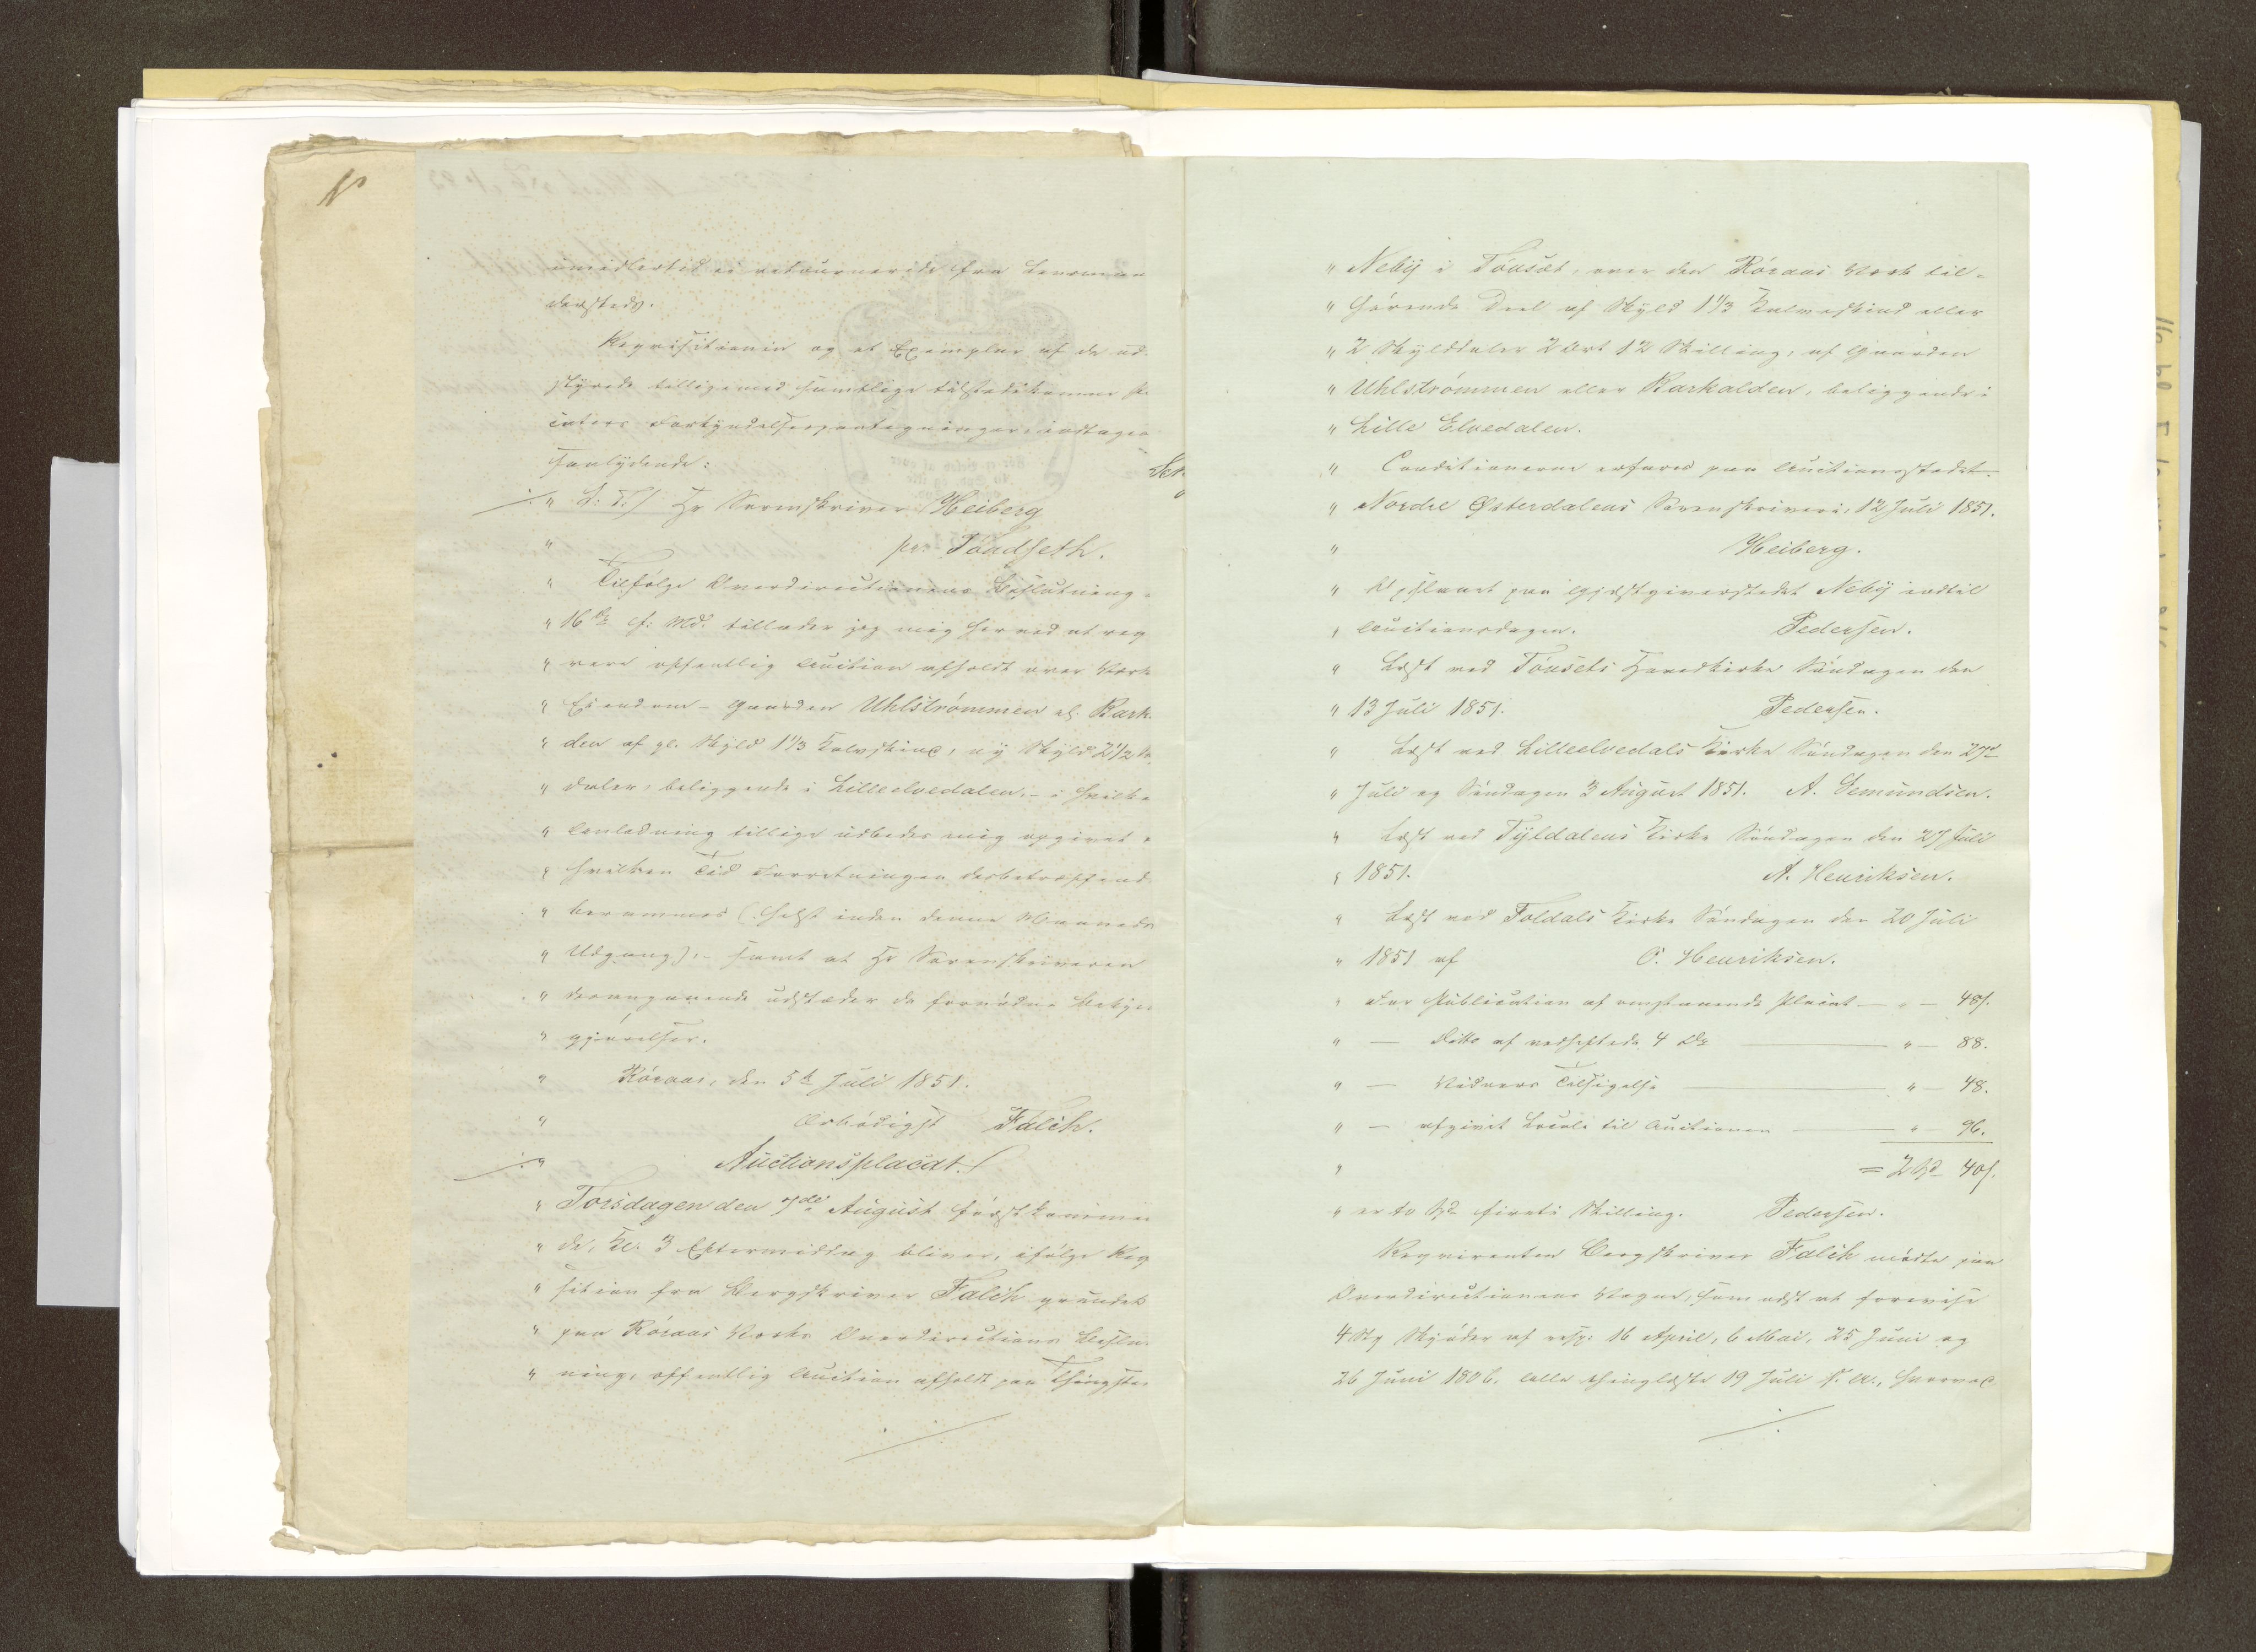 imidlertid ei retournerede fra
dersteds.
Reqvisitionen og et Exemplar af de ud-
styrede tilligemed samtlige tilstedekomne
Forkyndelsespaategninger indtages
saalydende:
" S. T./ Hr Sorenskriver Heiberg
" pr. Tøndseth.
" Tilfølge Overdirectionens Beslutning
" 16de f: Md. tillader jeg mig herved at reqv
" rere offentlig Auction afholdt over Værk
" Eiendom – Gaarden Uhlstrømmen el. Bark-
" den af gl. Skyld 1 1/3 Kalvskind, ny Skyld 2 1/2
" daler, beliggende i Lilleelvedalen, – i hvilk-
" Anledning tillige udbedes mig opgivet
" hvilken Tid Forretningen desbetræffende
" berammes (helst inden denne Maaneds
" Udgang), – samt at Hr Sorenskriveren
" desangaaende udsteder de fornødne Bekjen
" gjørelser.
" Røraas, den 5te Juli 1851.
" Ærbødigst Falch.
" Auctionsplacat./
" Torsdagen den 7de August førstkommen
" de, Kl. 3 Eftermiddag bliver, ifølge Reqv
" sition fra Bergskriver Falch grundet
" paa Røraas Værks Overdirections Beslu-
" ning, offentlig Auction afholdt paa Thingste-
" Neby i Tønset, over den Røraas Værk til-
" hørende Deel af Skyld 1 1/3 Kalveskind eller
" 2 Skylddaler 2 Ort 12 Skilling, af Gaarden
" Uhlstrømmen eller Barkalden, beliggende i
" Lille Elvedalen.
" Conditionerne erfares paa Auctionsstedet.
" Nordre Østerdalens Sorenskriveri, 12 Juli 1851.
" Heiberg.
" Opslaaet paa Gjæstgiverstedet Neby indtil
" Auctionsdagen. Pedersen.
" Læst ved Tønsets Hovedkirke Søndagen den
" 13 Juli 1851. Pedersen.
" Læst ved Lilleelvedals Kirke Søndagen den 27de
" Juli og Søndagen 3 August 1851. A. Semundsen.
" Læst ved Tyldalens Kirke Søndagen den 27 Juli
" 1851. A. Henriksen.
" Læst ved Foldals Kirke Søndagen den 20 Juli
" 1851 af O. Henriksen.
" For Publication af omstaaende Placat — " — 48s.
" — Ditto af vedheftede 4 Do — " — 88.
" — Vidners Tilsigelse — " — 48.
" — afgivet Locale til Auctionen — " — 96.
" = 2 Spd 40s.
" er to Spd. fireti Skilling. Pedersen.
Reqvirenten Bergskriver Falch mødte paa
Overdirectionens Vegne, samt at forevise
4 Stk Skjøder af resp: 16 April, 6 Mai, 25 Juni og
26 Juni 1806. alle thinglæste 19 Juli s. A., hvorved